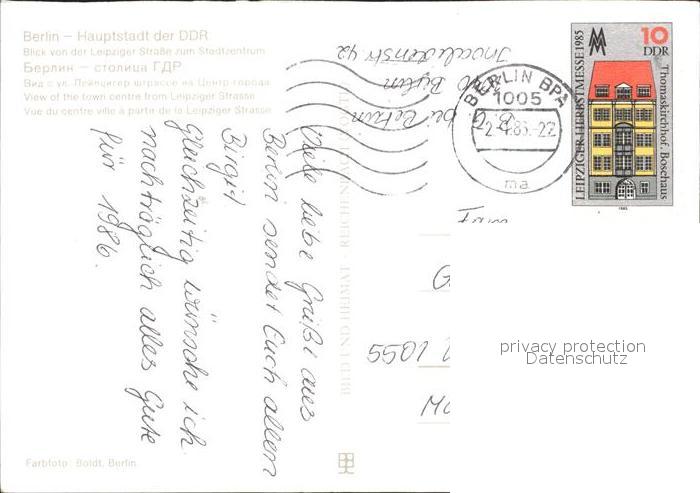 Berlin – Hauptstadt der DDR
Blick von der Leipziger Straße zum Stadtzentrum
Берлин – столица ГДР
Вид с ул. Лейпцигер штрассе на Центр города
View of the town centre from Leipziger Strasse
Vue du centre ville à partie de la Leipziger Strasse
Viele liebe Grüße aus
Berlin sendet Euch allen
Birgit
Gleichzeitig wünsche ich
nachträglich alles Gute
für 1986.
Farbfoto: Boldt, Berlin
BILD UND HEIMAT · REICHENBACH
Berlin
BERLIN BPA
1005
ma
LEIPZIGER HERBSTMESSE 1985
10
DDR
Thomaskirchhof, Bosehaus
1985
5501
privacy protection
Datenschutz